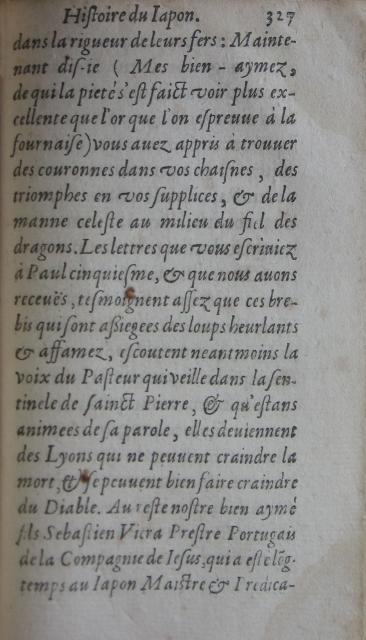 Hiſtoire du Iapon. 327
dans la rigueur de leurs fers : Mainte-
nant diſ-ie ( Mes bien - aymez,
de qui la pieté s'eſt faict voir plus ex-
cellente que l'or que l'on eſpreuue à la
fournaiſe ) vous auez appris à trouuer
des couronnes dans vos chaiſnes, des
triomphes en vos ſupplices, & de la
manne celeſte au milieu du fiel des
dragons. Les lettres que vous eſcriuiez
à Paul cinquieſme, & que nous auons
receuës, teſmoignent aſſez que ces bre-
bis qui ſont aßiegees des loups heurlants
& affamez, eſcoutent neantmoins la
voix du Paſteur qui veille dans la ſen-
tinele de ſainct Pierre, & qu'eſtans
animees de ſa parole, elles deuiennent
des Lyons qui ne peuuent craindre la
mort, & ſe peuuent bien faire craindre
du Diable. Au reſte noſtre bien aymé
fils Sebaſtien Viera Preſtre Portugais
de la Compagnie de Ieſus, qui a eſté lõg-
temps au Iapon Maiſtre & Predica-